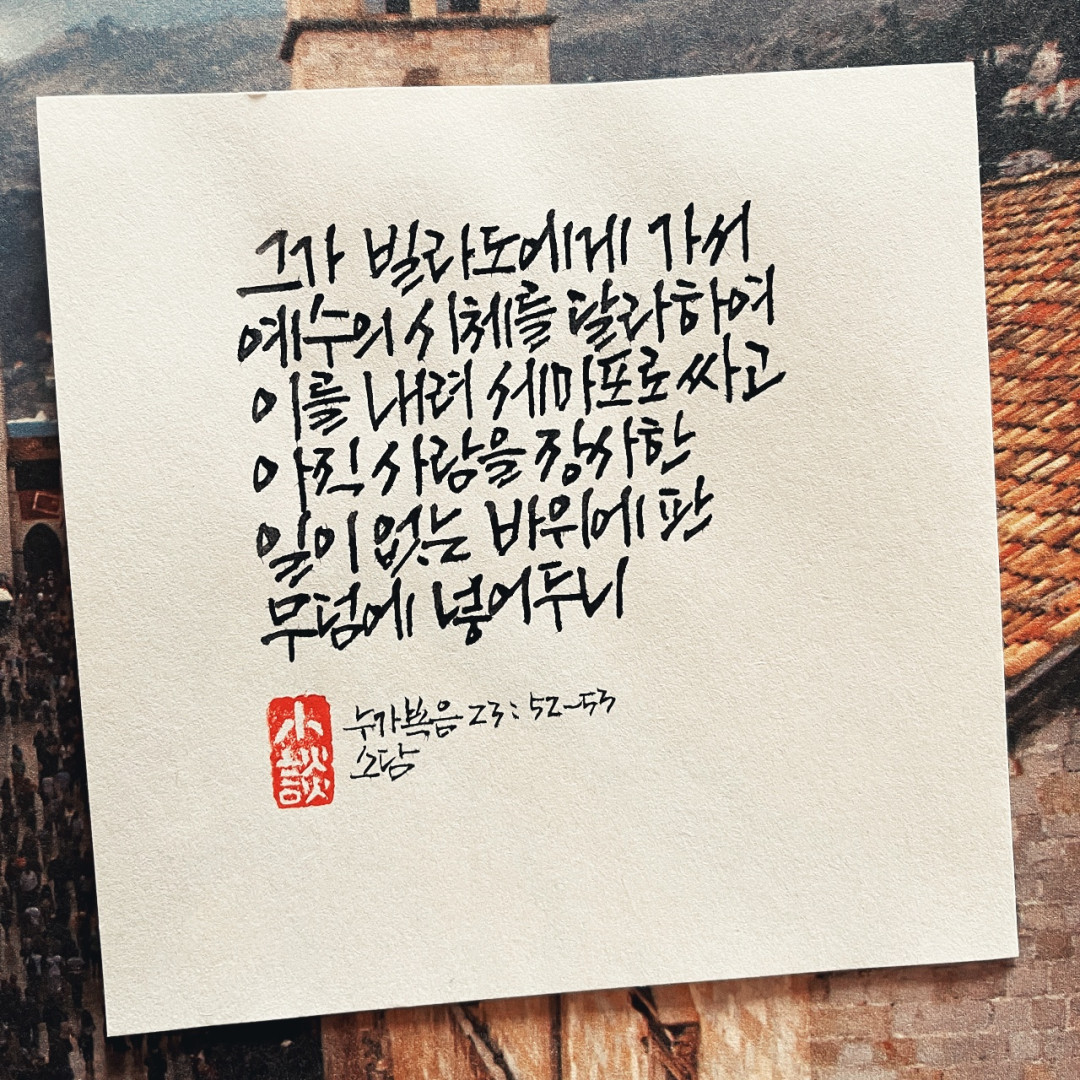 그가 빌라도에게 가서
예수의 시체를 달라하여
이를 내려 세마포로 싸고
아직 사람을 장사한
일이 없는 바위에 판
무덤에 넣어두니
누가복음 23:52~53
소담
小談